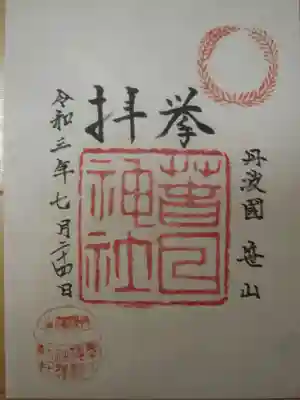 丹波國 笹山
挙拝
春日神社
令和三年七月二十四日